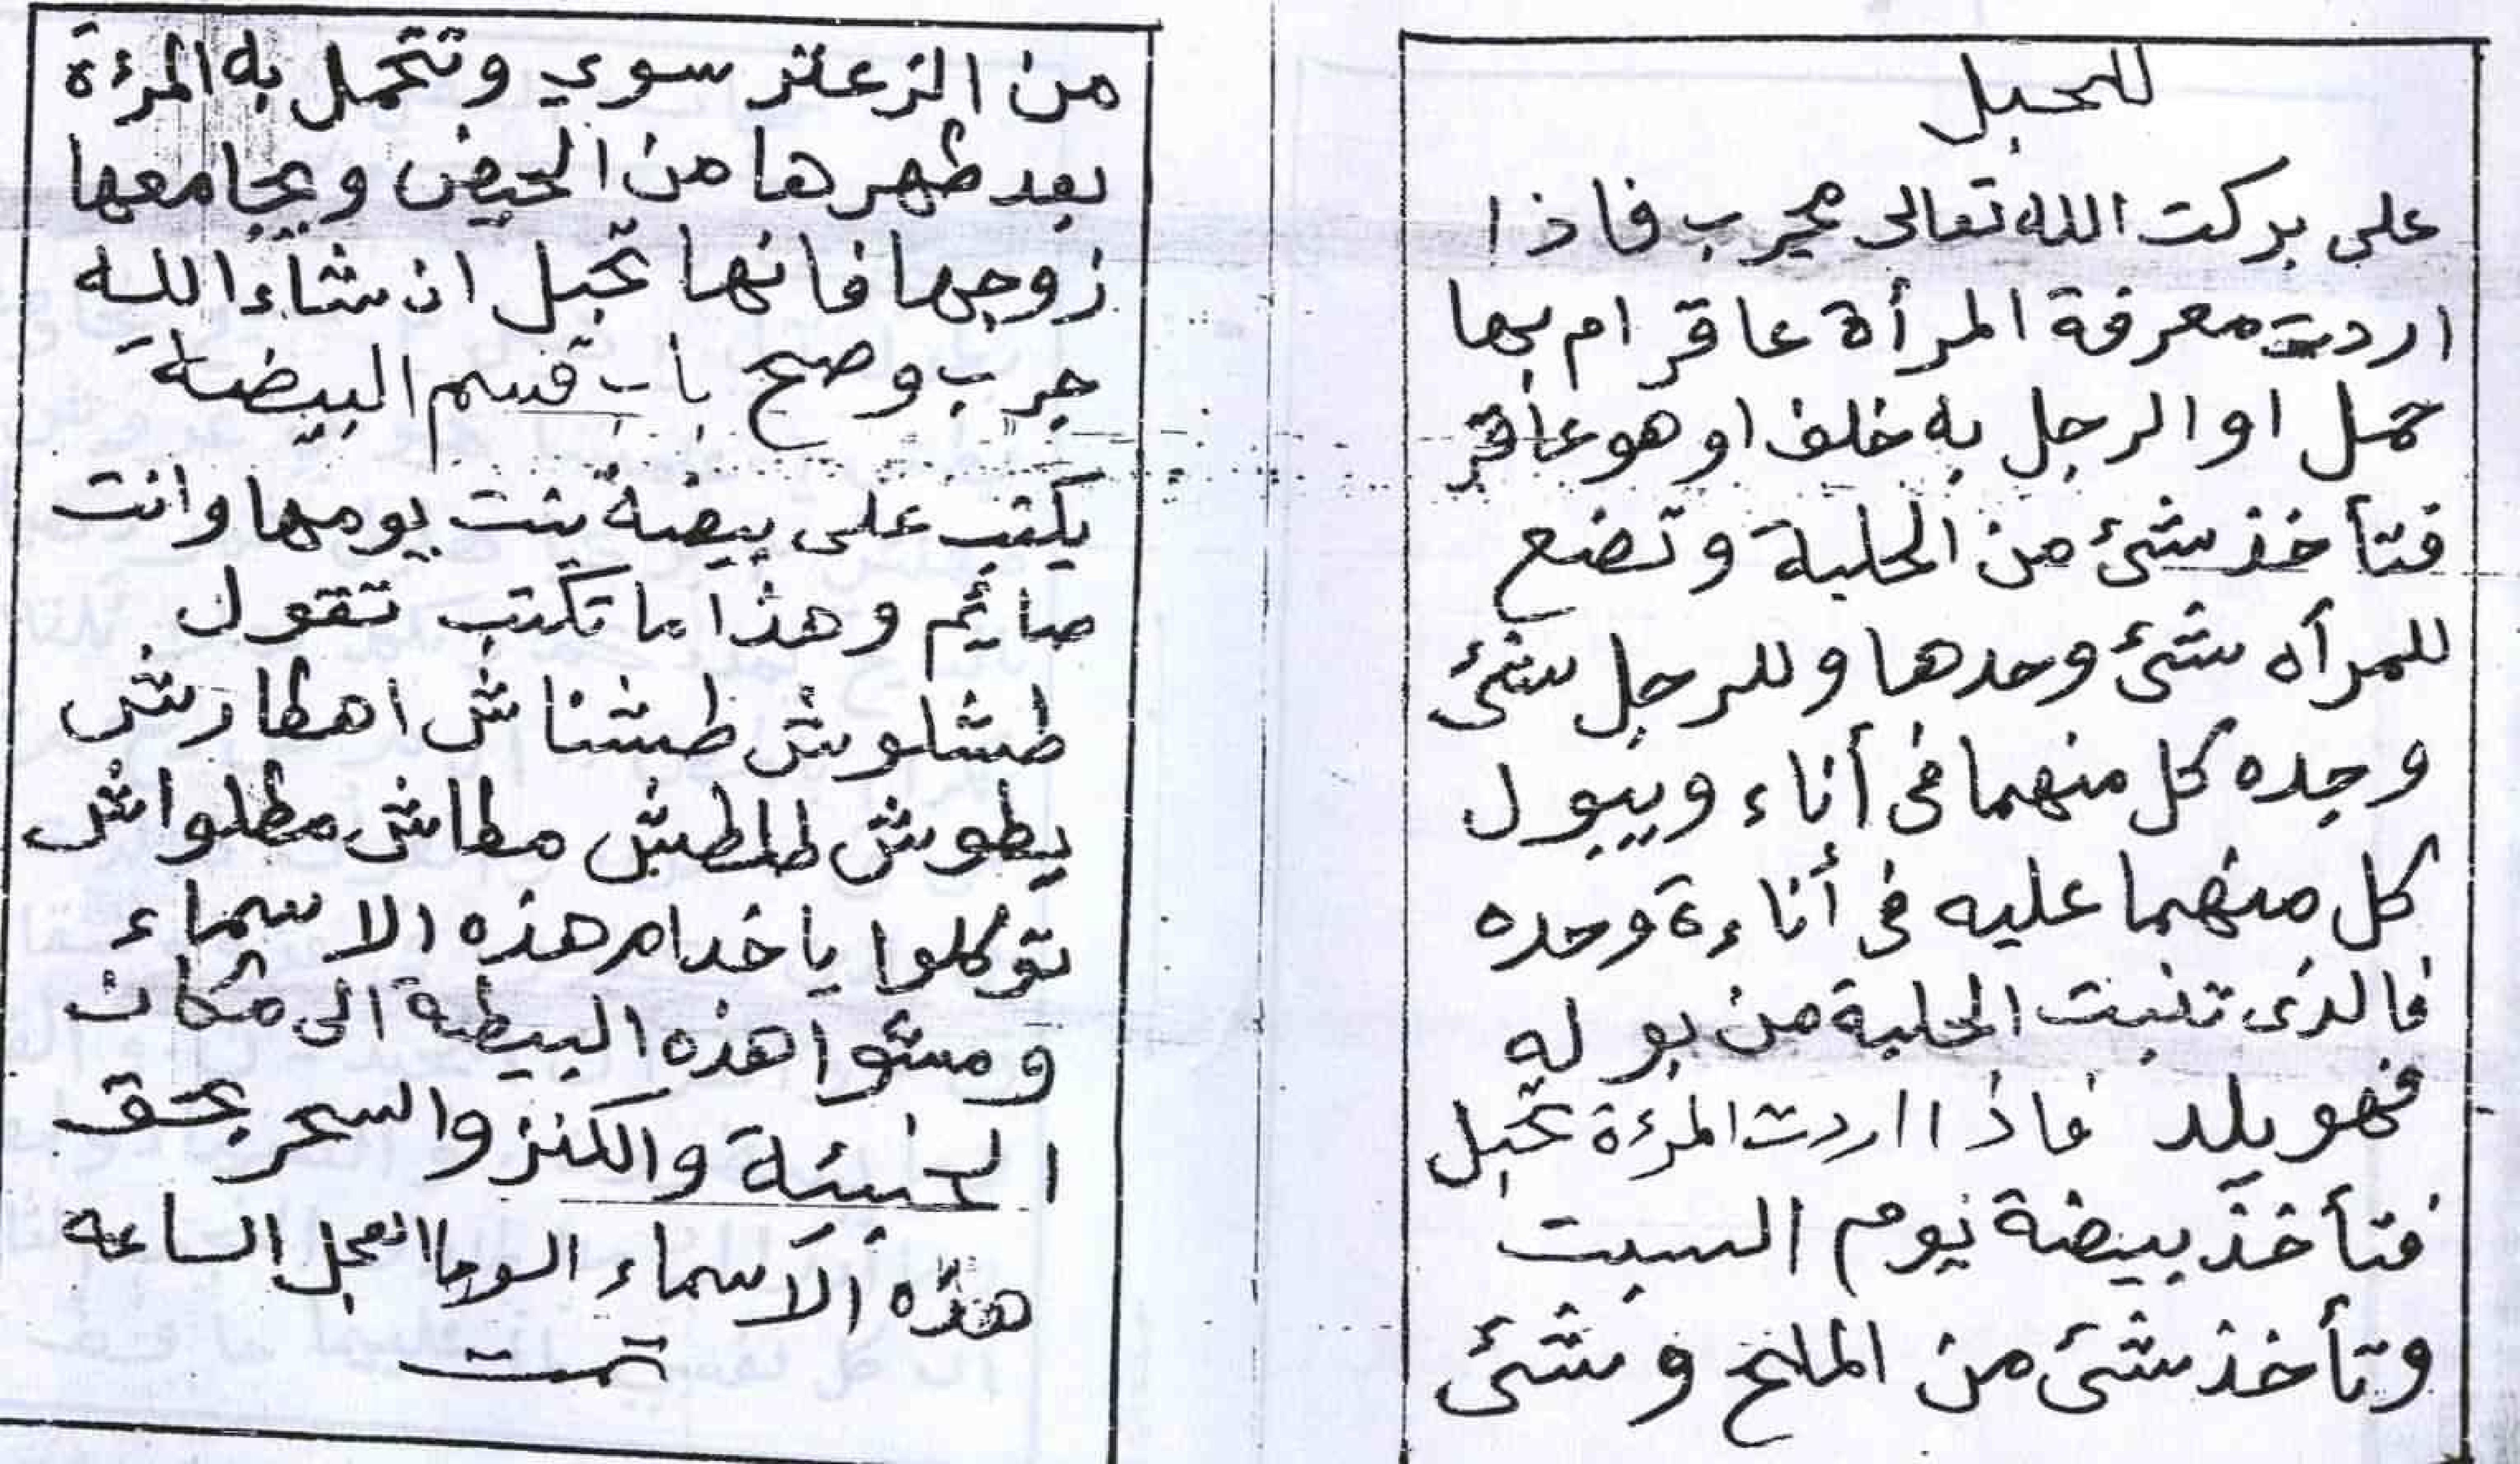 للحبل
على بركت الله تعالى مجرب فاذا
اردت معرفة المرأة عاقر ام بها
حمل او الرجل به خلف او هو عاقر
فتأخذ شئ من الحلبة وتضع
للمرأه شئ وحدها وللرجل شئ
وحده كل منهما فى أناء ويبول
كل منهما عليه فى أناءة وحده
فالذى تنبت الحلبة من بوله
فهو يلد فاذا اردت المرءة تحبل
فتأخذ بيضة يوم السبت
وتأخذ شئ من الملح وشئ
من الزعتر سوي وتتحمل به المرءة
بعد طهرها من الحيض ويجامعها
زوجها فانها تحبل ان شاء الله
جرب وصح باب قسم البيضة
يكتب على بيضة بنت يومها وانت
صايئم وهذا ما تكتب تقول
طشلوش طشناش اهطارش
يطوش طلطش مطاش مطلواش
توكلوا ياخدام هذه الاسماء
ومشوا هذه البيطة الى مكان
الخبيئة والكنز والسحر بحق
هذه الاسماء الوحا العجل الساعه
تمت